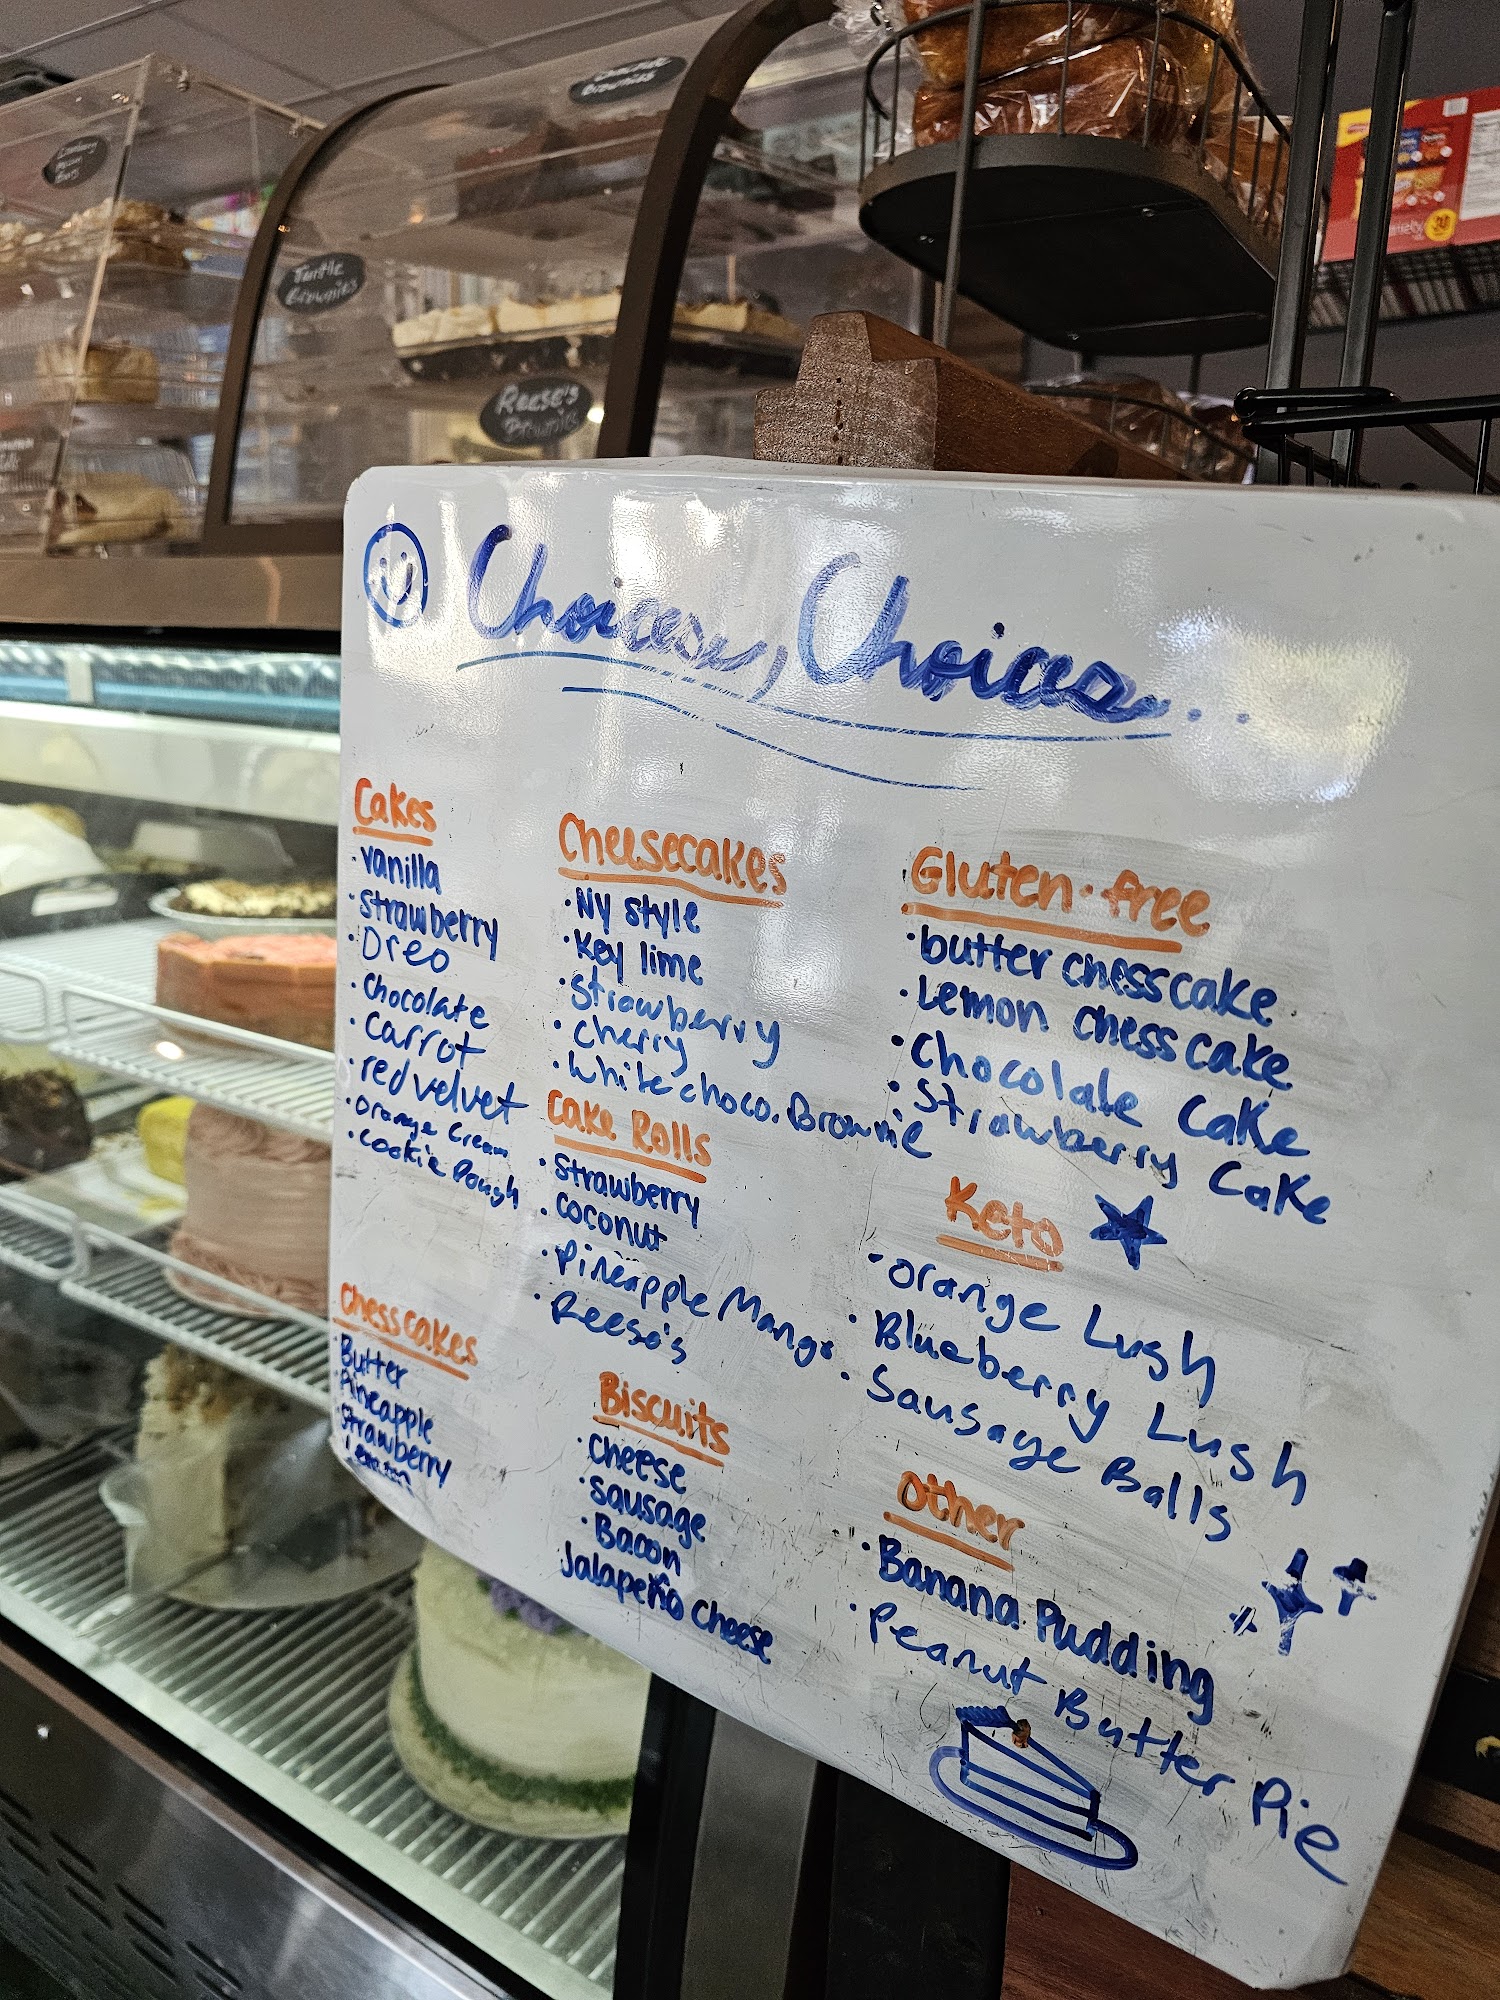 Turtle
Brownies
Reese's
Brownies
Choices, Choices...
Cakes
· vanilla
· strawberry
· Oreo
· Chocolate
· Carrot
· red velvet
· Orange Cream
· Cookie Dough
Chesscakes
Butter
Pineapple
Strawberry
Lemon
Cheesecakes
· Ny style
· Key lime
· Strawberry
· Cherry
· White choco. Brownie
Cake Rolls
· Strawberry
· Coconut
· Pineapple Mango
· Reese's
Biscuits
· Cheese
· Sausage
· Bacon
Jalapeño Cheese
Gluten-free
· butter chesscake
· Lemon chesscake
· Chocolate Cake
· Strawberry Cake
Keto
· Orange Lush
· Blueberry Lush
· Sausage Balls
Other
· Banana Pudding
· Peanut Butter Pie